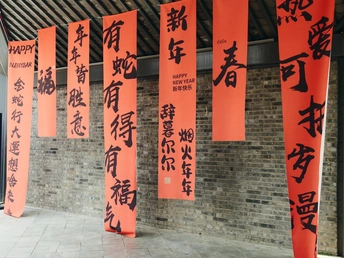 HAPPY
NEW YEAR
金蛇行大運想啥來
福
年年皆胜意
有蛇有得有福气
新年
HAPPY
NEW YEAR
新年快乐
辞暮尔尔
烟火年年
春
热爱可抵岁漫